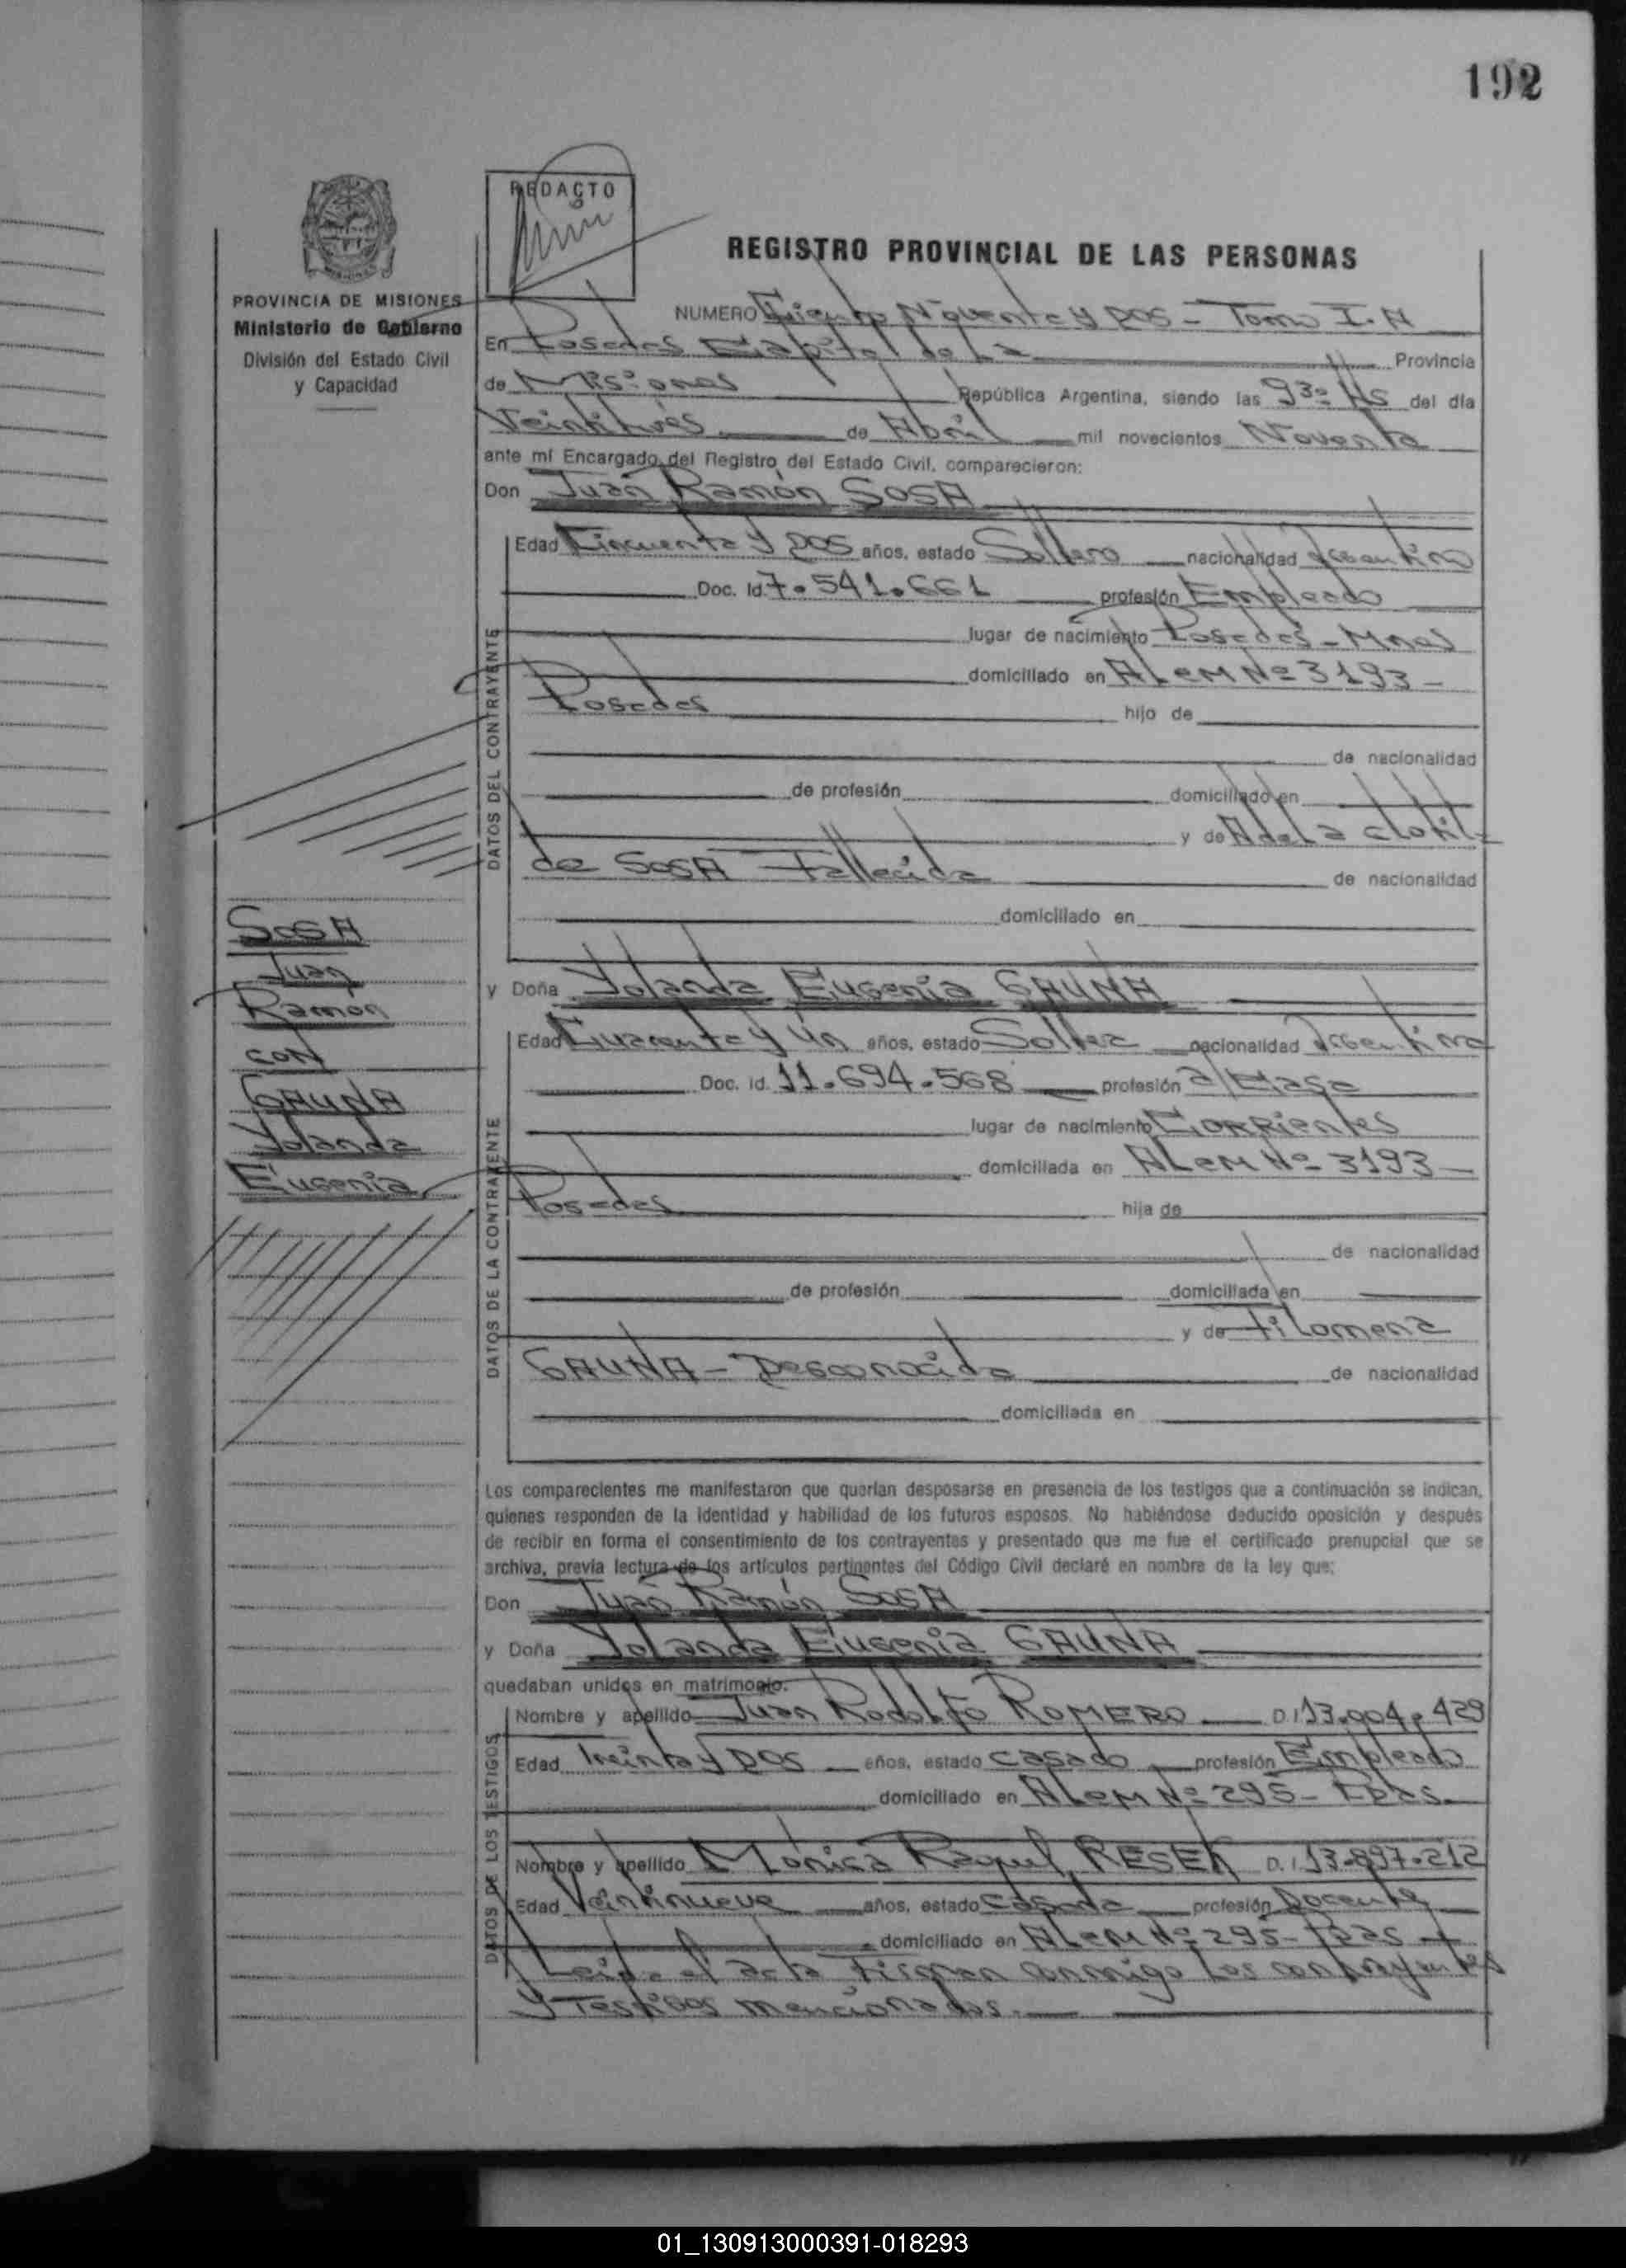 192
REDACTO
REGISTRO PROVINCIAL DE LAS PERSONAS
PROVINCIA DE MISIONES
Ministerio de Gobierno
División del Estado Civil
y Capacidad
NUMERO Ciento Noventa y DOS - Tomo I.A
En Posadas Capital de La Provincia
de Misiones República Argentina, siendo las 9³⁰ Hs del día
Veintitrés de Abril mil novecientos Noventa
ante mí Encargado del Registro del Estado Civil, comparecieron:
Don Juan Ramón SOSA
DATOS DEL CONTRAYENTE
Edad Cincuenta y DOS años, estado Soltero nacionalidad Argentino
Doc. Id. 7.541.661 profesión Empleado
lugar de nacimiento Posadas - Mnes
domiciliado en ALEM Nº 3193 -
Posadas hijo de
de nacionalidad
de profesión domiciliado en
y de Adela Clotil
de SOSA Fallecida de nacionalidad
domiciliado en
SOSA
Juan
Ramón
CON
GAUNA
Yolanda
Eugenia
y Doña Yolanda Eugenia GAUNA
DATOS DE LA CONTRAYENTE
Edad Cuarenta y Un años, estado Soltera nacionalidad Argentina
Doc. Id. 11.694.568 profesión a/casa
lugar de nacimiento Corrientes
domiciliada en ALEM Nº 3193 -
Posadas hija de
de nacionalidad
de profesión domiciliada en
y de Filomena
GAUNA - Desconocido de nacionalidad
domiciliada en
Los comparecientes me manifestaron que querían desposarse en presencia de los testigos que a continuación se indican,
quienes responden de la identidad y habilidad de los futuros esposos. No habiéndose deducido oposición y después
de recibir en forma el consentimiento de los contrayentes y presentado que me fue el certificado prenupcial que se
archiva, previa lectura de los artículos pertinentes del Código Civil declaré en nombre de la ley que:
Don Juan Ramón SOSA
y Doña Yolanda Eugenia GAUNA
quedaban unidos en matrimonio.
DATOS DE LOS TESTIGOS
Nombre y apellido Juan Rodolfo ROMERO D.I 13.904.429
Edad treinta y DOS años, estado casado profesión Empleado
domiciliado en ALEM Nº 295 - Pdas.
Nombre y apellido Mónica Raquel RESEK D.I 13.897.212
Edad Veintinueve años, estado casada profesión Docente
domiciliado en ALEM Nº 295 - Pdas -
Leida el acta Firman conmigo Los contrayentes
y Testigos mencionados.
01_130913000391-018293